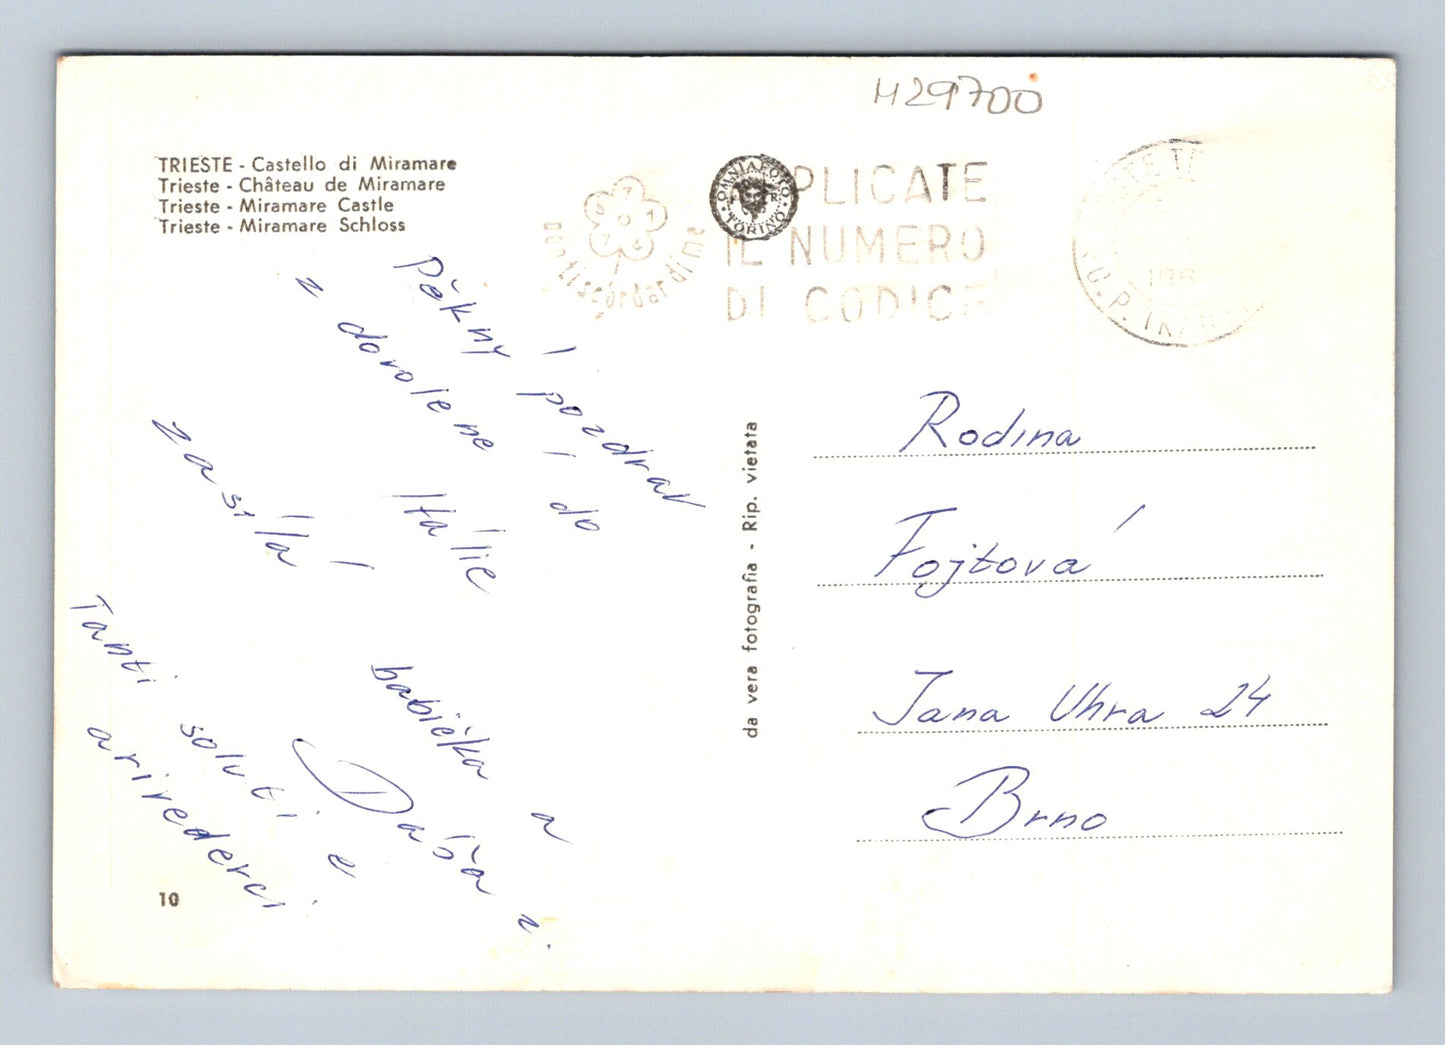 H29700
TRIESTE - Castello di Miramare
Trieste - Château de Miramare
Trieste - Miramare Castle
Trieste - Miramare Schloss
OMNIAFOTO
TORINO
PLICATE
IL NUMERO
DI CODICE
non ti scordar di me
Pěkný pozdrav
z dovolené do
Itálie
zasílá
babička a
Dáša z.
Tanti soluti e
arivederci
10
da vera fotografia - Rip. vietata
Rodina
Fojtová
Jana Uhra 24
Brno